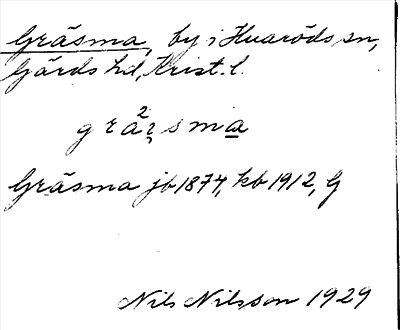 Gräsma, by i Huaröds sn,
Gärds hd, Krist. l.
grä²ꝛsma
Gräsma jb 1874, kb 1912, G
Nils Nilsson 1929